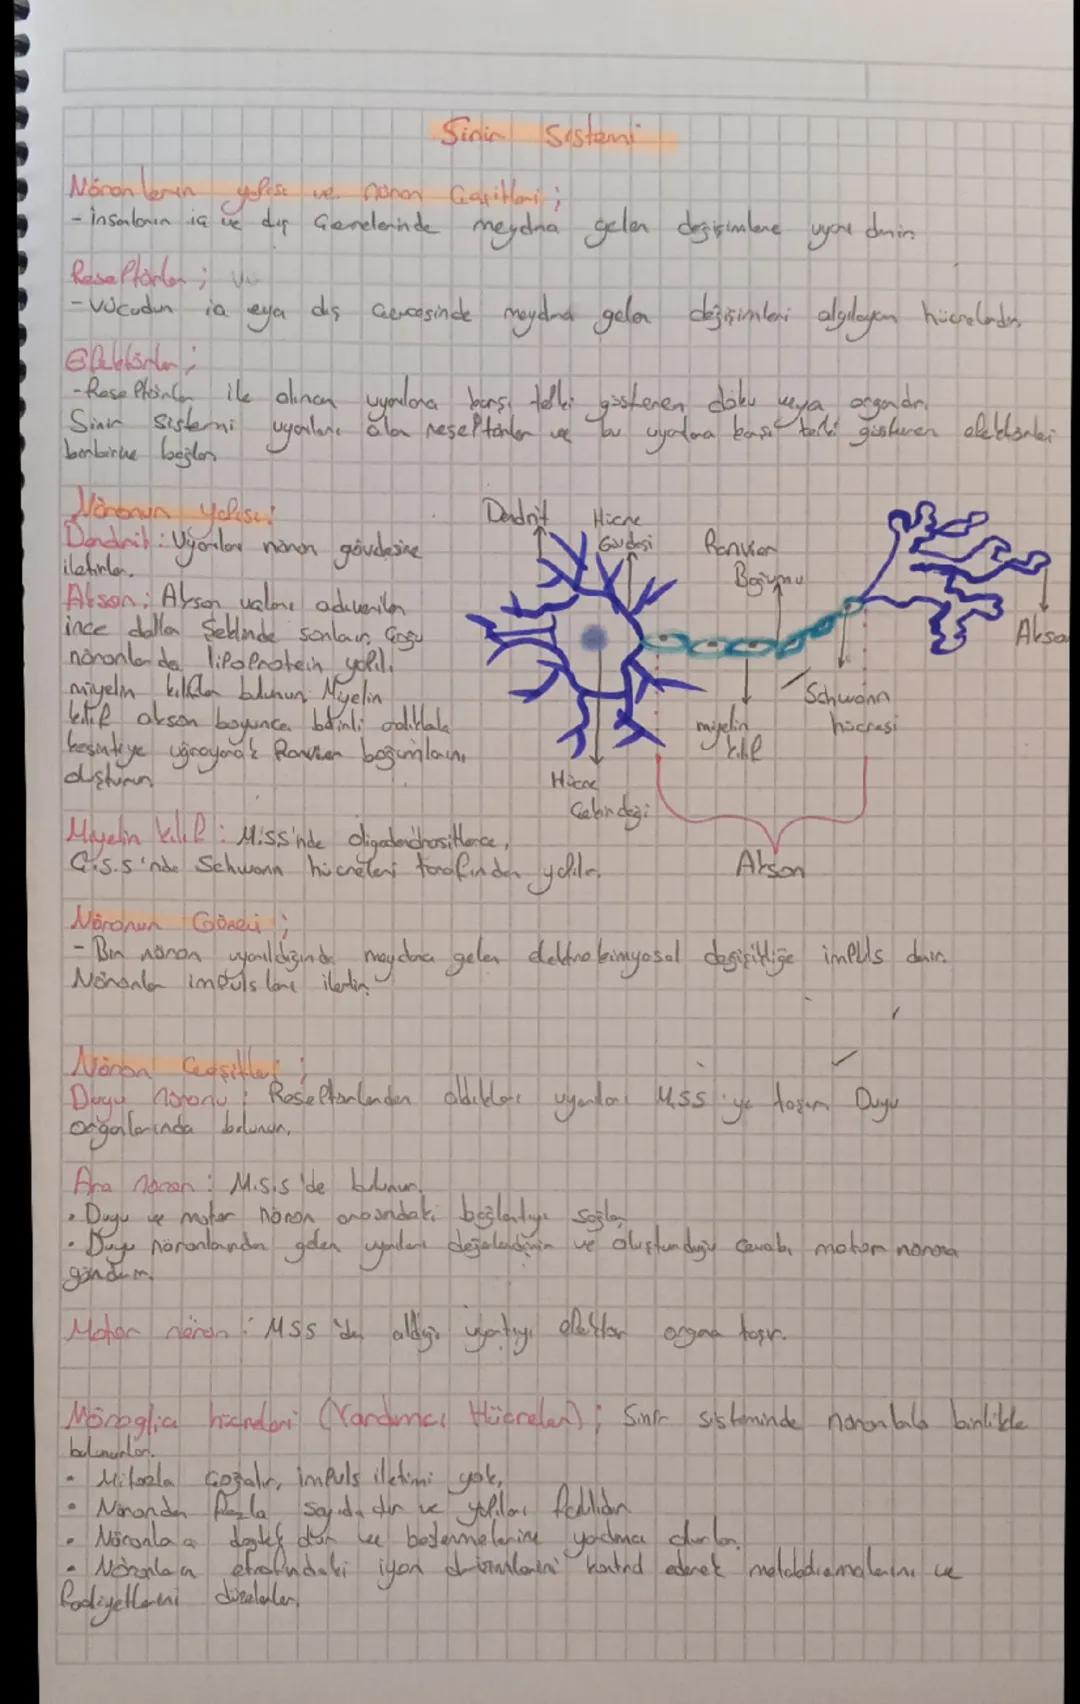 Sinir Sistemi
Nöronların yapısı ve nöron Çeşitleri;
- insanların iç ve dış Çevrelerinde meydna gelen değişimlere uyarı denir.
Reseptörler;
- Vücudun iç veya dış Çevresinde meydna gelen değişimleri algılayan hücrelerdir.
Efektörler;
- Reseptörler ile alınan uyarılara karşı tepki gösteren doku veya organdır.
Sinir Sistemi uyarıları alan reseptörler ve bu uyarılara karşı tepki gösteren efektörleri
birbirine bağlar.
Nöronun yapısı:
Dendrit: Uyarıları nöron gövdesine
iletirler.
Akson: Akson uçları adı verilen
ince dallar Şeklinde sonlanır. Çoğu
nöronlarda lipoprotein yapılı
miyelin kılıflar bulunur. Miyelin
kılıf akson boyunca belirli aralıklarla
kesintiye uğrayarak Ranvier boğumlarını
oluşturur.
Dendrit
Hücre
Gövdesi
Ranvier
Boğumu
Schwann
hücresi
miyelin
kılıf
Hücre
Çekirdeği
Akson
Miyelin kılıf: M.SS'nde oligodendrositlerce,
Ç.S.S'nde Schwann hücreleri tarafından yapılır.
Nöronun Görevi;
- Bir nöron uyarıldığında meydana gelen elektrokimyasal değişikliğe impuls denir.
Nöronlar impulsları iletir.
Nöron Çeşitleri;
Duyu nöronu: Reseptörlerden aldıkları uyarıları MSS'ye taşır. Duyu
organlarında bulunur.
Ara nöron: M.S.S'de bulunur.
• Duyu ve motor nöron arasındaki bağlantıyı sağlar
• Duyu nöronlarından gelen uyarıları değerlendirir ve oluşturduğu cevabı motor nörona
gönderir.
Motor nöron: MSS'den aldığı uyartıyı efektör organa taşır.
Nöroglia hücreleri (Yardımcı Hücreler); Sinir sisteminde nöronlarla birlikte
bulunurlar.
• Mitozla çoğalır, impuls iletimi yok,
• Nörondan fazla sayıdadır ve yapıları farklıdır.
• Nöronlara destek olur ve beslenmelerine yardımcı olurlar.
• Nöronların etrafındaki iyon durumlarını kontrol ederek metabolizmalarını ve
faaliyetlerini düzenler.